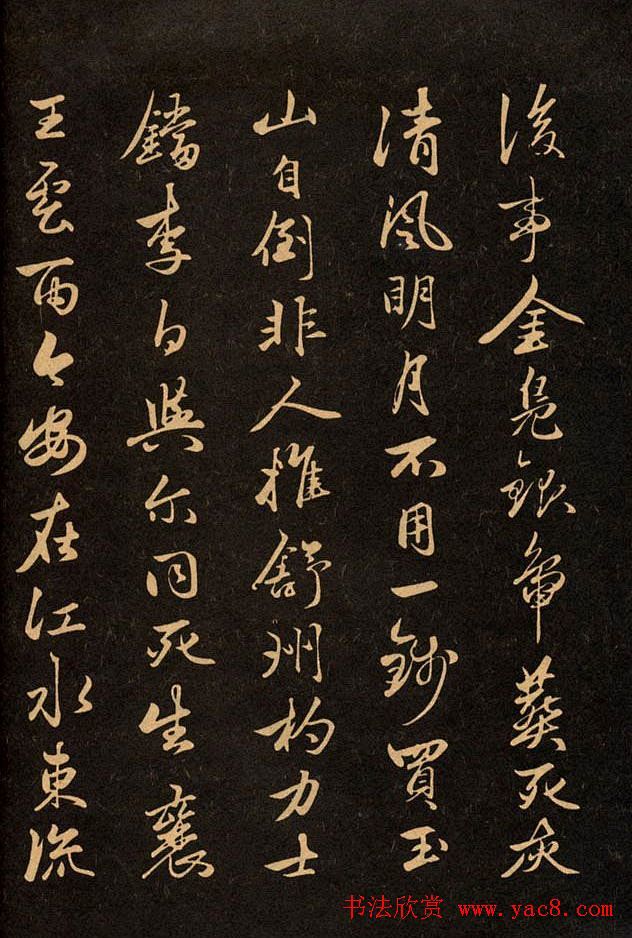 後事金凫銀龜葬死灰
清風明月不用一錢買玉
山自倒非人推舒州杓力士
鐺李白與尔同死生襄
王雲雨今安在江水東流
书法欣赏 www.yac8.com